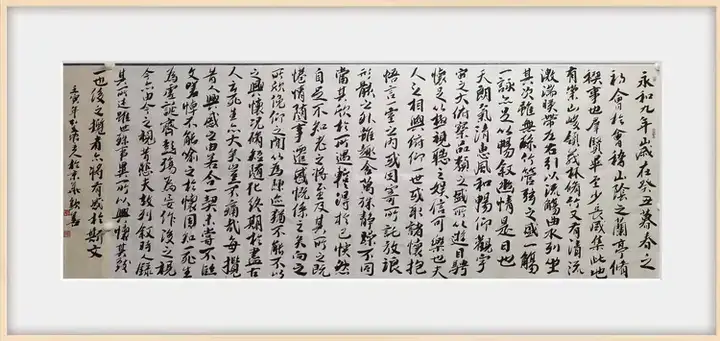 永和九年歲在癸丑暮春之
初會於會稽山陰之蘭亭脩
禊事也群賢畢至少長咸集此地
有崇山峻領茂林脩竹又有清流
激湍映帶左右引以流觴曲水列坐
其次雖無絲竹管弦之盛一觴
一詠亦足以暢敘幽情是日也
天朗氣清惠風和暢仰觀宇
宙之大俯察品類之盛所以遊目騁
懷足以極視聽之娛信可樂也夫
人之相與俯仰一世或取諸懷抱
悟言一室之內或因寄所託放浪
形骸之外雖趣舍萬殊靜躁不同
當其欣於所遇暫得於己快然
自足不知老之將至及其所之既
惓情隨事遷感慨係之矣向之
所欣俛仰之閒以為陳迹猶不能不以
之興懷況脩短隨化終期於盡古
人云死生亦大矣豈不痛哉每攬
昔人興感之由若合一契未嘗不臨
文嗟悼不能喻之於懷固知一死生
為虛誕齊彭殤為妄作後之視
今亦由今之視昔悲夫故列敘時人錄
其所述雖世殊事異所以興懷其致
一也後之攬者亦將有感於斯文
壬寅年